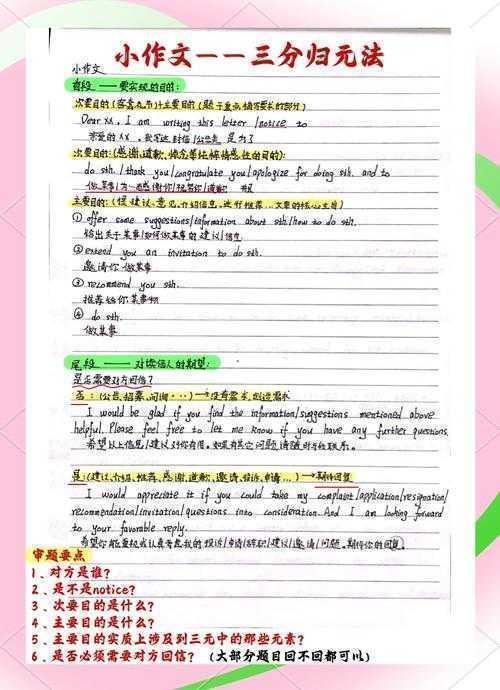 小作文——三分归元法
小作文
首段 —— 要实现的目的:
Dear xx, I am writing this letter /notice to
亲爱的xx,我写这封信/公告是为了
次要目的:(感谢,道歉,
do sth. / thank you/congratulate you/apologize for doing sth. and to
做某事/为…感谢你/祝贺你/道歉
主要目的:(提建议、意见,介绍信息,进行推荐…文章的核心主旨)
① offer some suggestions/information about sth./how to do sth.
给出关于某事/如何做某事的建议/信息
② extend you an invitation to do sth.
邀请你做某事
③ recommend you sth.
推荐给你某事物
④ do sth.
做某事
尾段 —— 对读信人的期望:
是否需要对方回信?
否:(公告,招募,问询···)→没有需求,创造需求
I would be glad if you find the information/suggestions mentioned above
helpful. Please feel free to let me know if you have any further questions.
希望以上信息/建议对你有用。如果有其它问题请随时与我联系。
是(建议、介绍,推荐,感谢,道歉、邀请,投诉,申请…)→期待回复
I would appreciate it if you could take my complaint/application/resignation/
recommendation/invitation/questions into consideration. And I am looking forward
to your favorable reply.
希望你能重视或认真考虑我的投诉/申请/辞职/建议/邀请/问题。期待你的回复。
审题要点
1、对方是谁?
2、是不是notice?
3、次要目的是什么?
4、主要目的是什么?
5、主要目的实质上涉及到三元中的那些元素?
6、是否必须需要对方回信?(大部分题目回不回都可以)